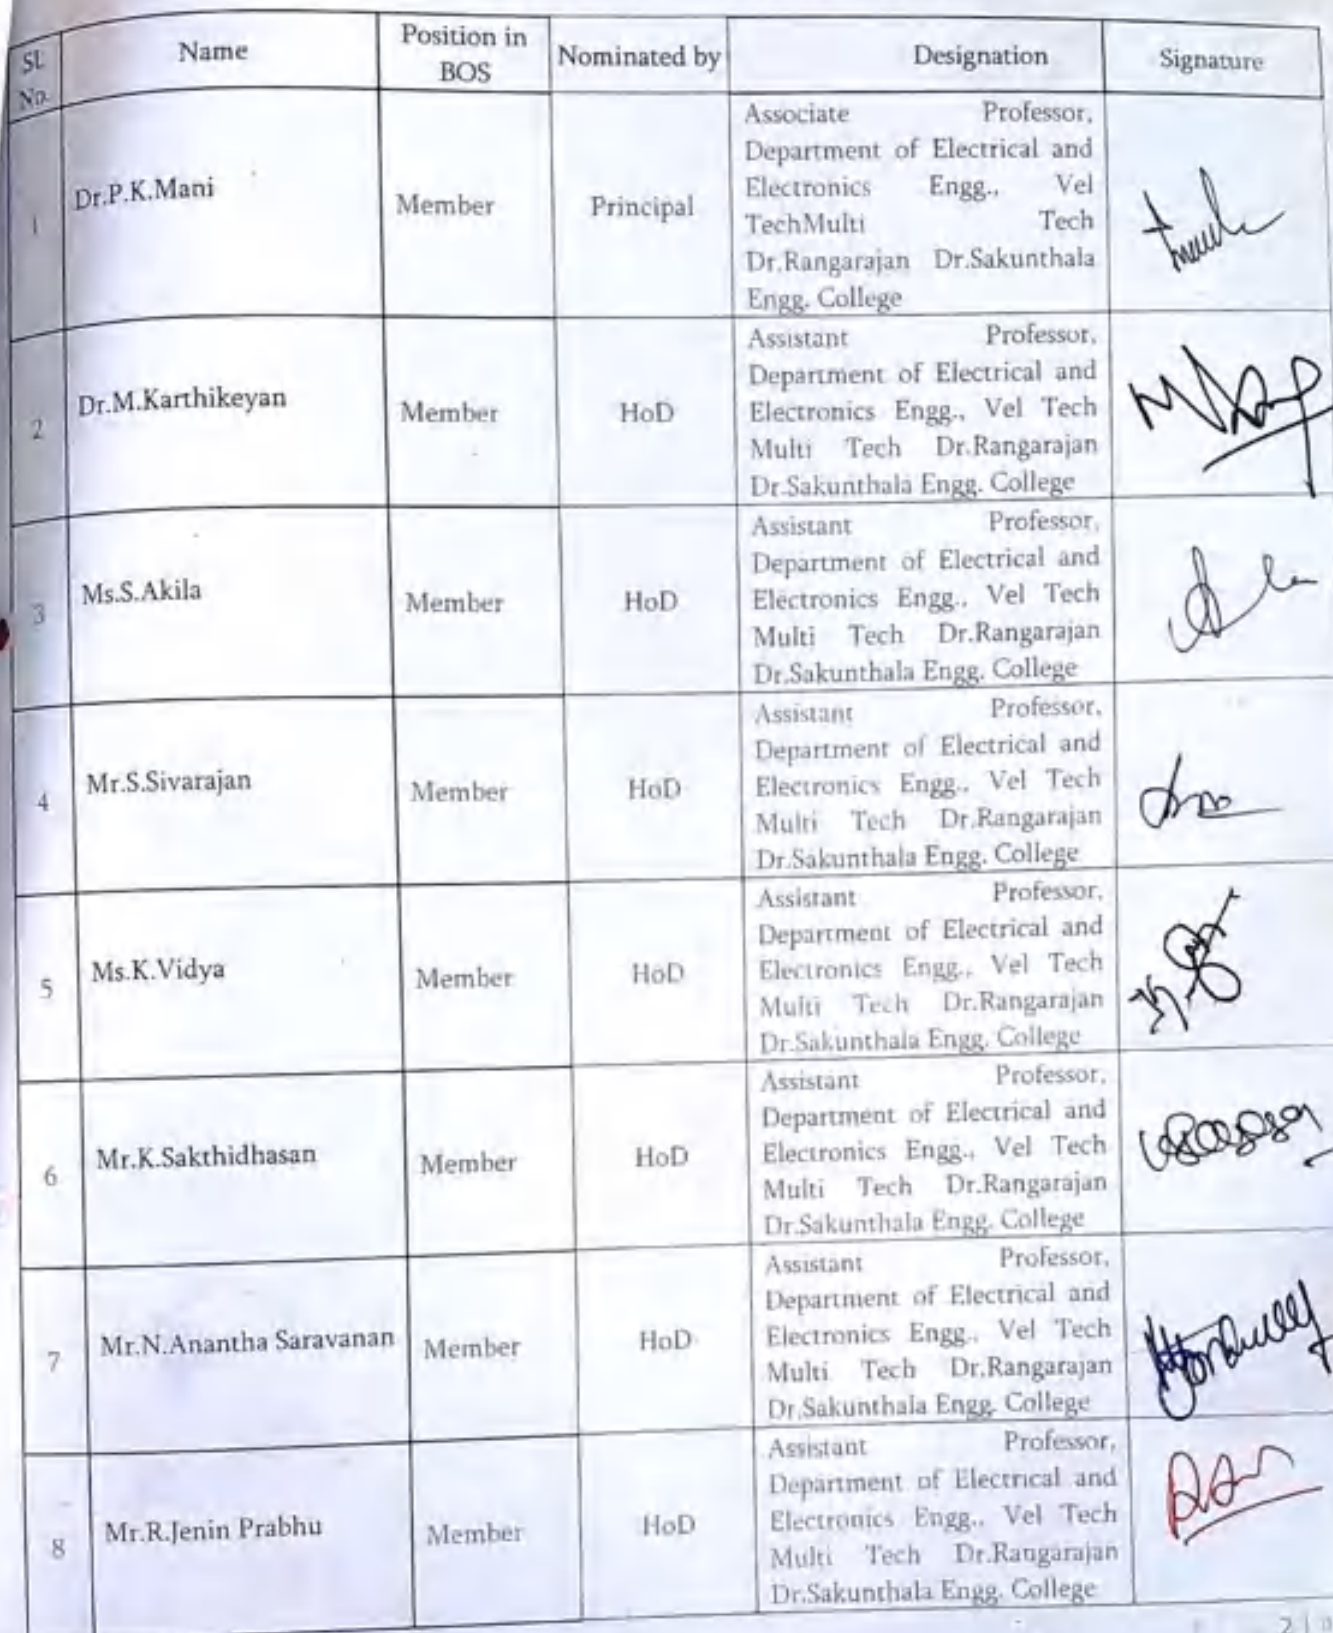 Sl. No. Name Position in BOS Nominated by Designation Signature
1 Dr.P.K.Mani Member Principal
Associate Professor,
Department of Electrical and
Electronics Engg., Vel
TechMulti Tech
Dr.Rangarajan Dr.Sakunthala
Engg. College
2 Dr.M.Karthikeyan Member HoD
Assistant Professor,
Department of Electrical and
Electronics Engg., Vel Tech
Multi Tech Dr.Rangarajan
Dr.Sakunthala Engg. College
3 Ms.S.Akila Member HoD
Assistant Professor,
Department of Electrical and
Electronics Engg., Vel Tech
Multi Tech Dr.Rangarajan
Dr.Sakunthala Engg. College
4 Mr.S.Sivarajan Member HoD
Assistant Professor,
Department of Electrical and
Electronics Engg., Vel Tech
Multi Tech Dr.Rangarajan
Dr.Sakunthala Engg. College
5 Ms.K.Vidya Member HoD
Assistant Professor,
Department of Electrical and
Electronics Engg., Vel Tech
Multi Tech Dr.Rangarajan
Dr.Sakunthala Engg. College
6 Mr.K.Sakthidhasan Member HoD
Assistant Professor,
Department of Electrical and
Electronics Engg., Vel Tech
Multi Tech Dr.Rangarajan
Dr.Sakunthala Engg. College
7 Mr.N.Anantha Saravanan Member HoD
Assistant Professor,
Department of Electrical and
Electronics Engg., Vel Tech
Multi Tech Dr.Rangarajan
Dr.Sakunthala Engg. College
8 Mr.R.Jenin Prabhu Member HoD
Assistant Professor,
Department of Electrical and
Electronics Engg., Vel Tech
Multi Tech Dr.Rangarajan
Dr.Sakunthala Engg. College
2 |